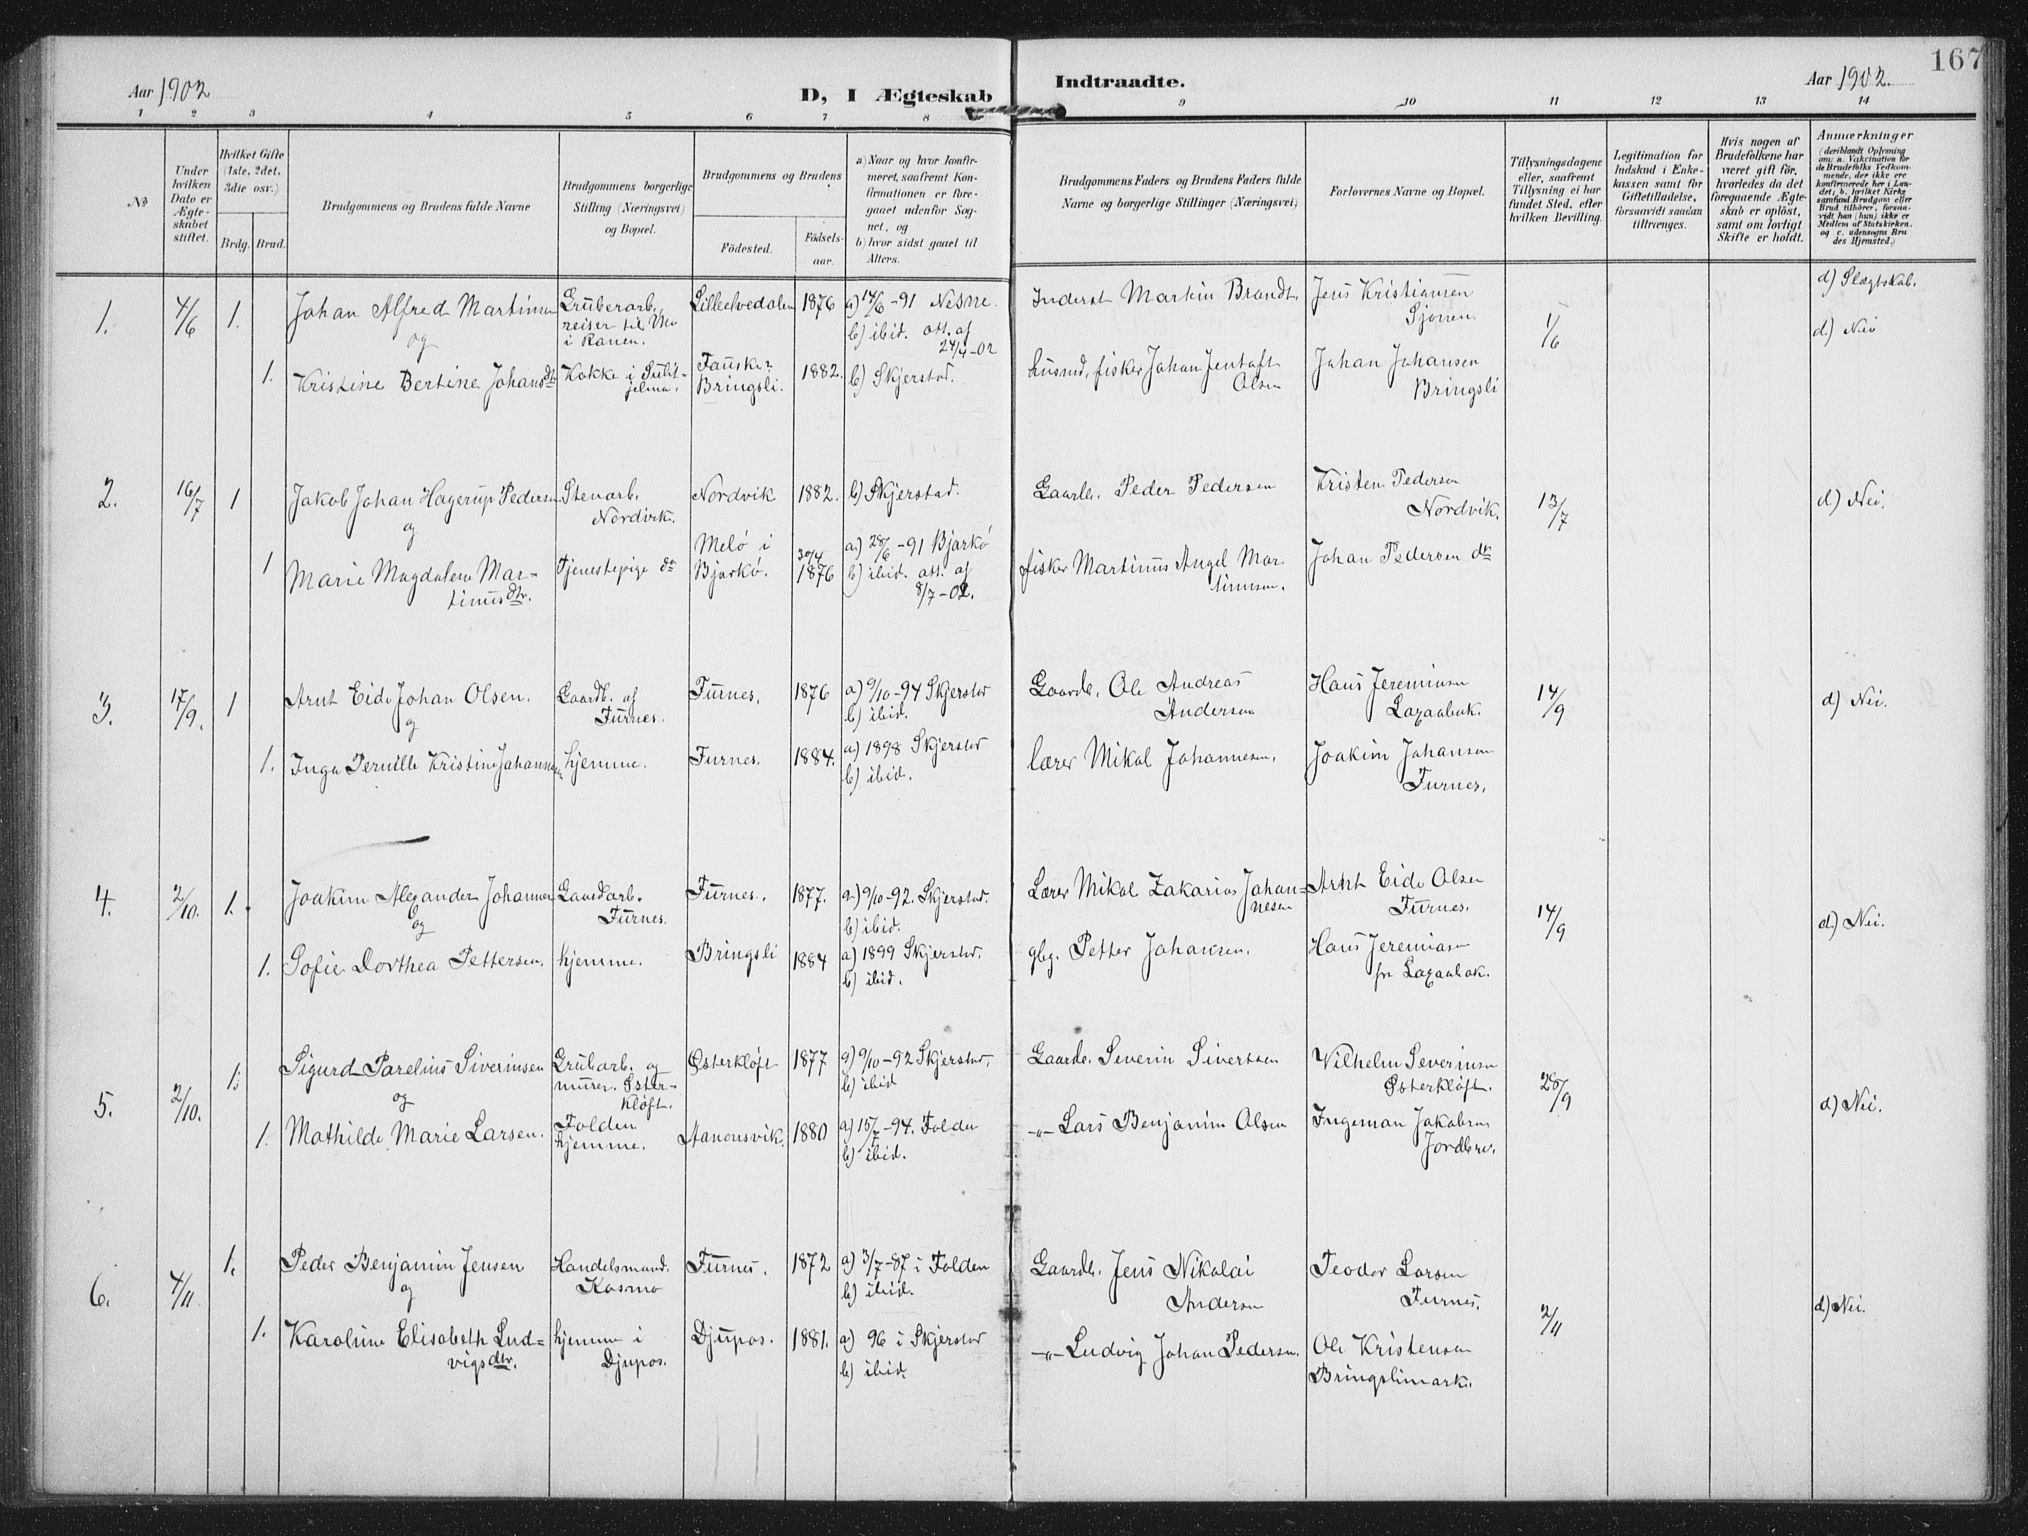 167
Aar 1902
D, I Ægteskab Indtraadte.
Aar 1902.
1 2 3 4 5 6 7 8 9 10 11 12 13 14
No
Under hvilken Dato er Ægteskabet stiftet.
Hvilket Gifte (1ste, 2det, 3die osv.)
Brdg. Brud.
Brudgommens og Brudens fulde Navne
Brudgommens borgerlige Stilling (Næringsvei) og Bopæl.
Brudgommens og Brudens
Födested.
Födsels-aar.
a) Naar og hvor konfirmeret, saafremt Konfirmationen er foregaaet udenfor Sognet, og
b) hvor sidst gaaet til Alters.
Brudgommens Faders og Brudens Faders fulde Navne og borgerlige Stillinger (Næringsvei)
Forlovernes Navne og Bopæl.
Tillysningsdagene eller, saafremt Tillysning ei har fundet Sted, efter hvilken Bevilling.
Legitimation for Indskud i Enkekassen samt for Giftetilladelse, forsaavidt saadan tiltrænges.
Hvis nogen af Brudefolkene har været gift för, hvorledes da det foregaaende Ægteskab er oplöst, samt om lovligt Skifte er holdt.
Anmærkninger
(deriblandt Oplysning om: a. Vakcination for de Brudefolks Vedkommende, der ikke ere konfirmerede her i Landet; b. hvilket Kirkesamfund Brudgom eller Brud tilhörer, forsaavidt han (hun) ikke er Medlem af Statskirken, og c. udensogns Brudes Hjemsted.)
d) Slægtskab.
1. 4/6 1. Johan Alfred Martinsen Gruberarb. reiser til Mo i Ranen. 1876 a) 14/6-91 Nesne. b) ibid. att. af 24/4-02 Inderst Martin Brandt. Jens Kristiansen Sjonen. 1/6 d.) Nei
og
1. Kristine Bertine Johansdtr Kokke i Sulitjelma. Fauske Bringsli. 1882. b) Skjerstad. fisker Johan Jentoft Olsen Johan Johansen Bringsli
2. 16/7 1 Jakob Johan Hagerup Pedersen Stenarb. Nordvik. Nordvik 1882. b) Skjerstad. Gaardb. Peder Pedersen Kristen Pedersen Nordvik. 13/7 d) Nei.
og
1 Marie Magdalene Martinusdtr. Tjenestepige do Melö i Bjarkö. 30/4 1876 a.) 28/6-91 Bjarkö b) ibid. att. af 8/7-02. fisker Martinus Angel Martinusen. Johan Pedersen do
3. 17/9. 1 Arnt Eide Johan Olsen. Gaardb. af Furnes. Furnes. 1876 a) 9/10-94 Skjerstad b) ibid. Gaardb. Ole Andreas Andersen Hans Jeremiasen 14/9 d) Nei.
og
1. Inga Pernille Kristine Johannesen hjemme. Furnes. 1884. a) 1898 Skjerstad b) ibid. lærer Mikal Johannesen. Joakim Johansen Furnes.
4. 2/10. 1. Joakim Alexander Johannesen Gaardarb. Furnes. Furnes. 1877. a) 9/10-92. Skjerstad. b) ibid. Lærer Mikal Zakarias Johannesen Arnt Eide Olsen Furnes. 14/9 d.) Nei.
og
1. Sofie Dorthea Pettersen. hjemme. Bringsli 1884 a) 1899 Skjerstad. b) ibid. gbg. Petter Johansen. Hans Jeremiasen
5. 2/10. 1. Sigurd Parelius Siverinsen Grubarb. og murer. Österkløft. Østerkløft 1877 a) 9/10-92 Skjerstad, b) ibid Gaardb. Severin Sivertsen Vilhelm Severinsen Østerkløft. 28/9 d) Nei.
og
1. Mathilde Marie Larsen. Folden hjemme. 1880 a) 15/7-94. Folden b) ibid. -"- Lars Benjamin Olsen Ingeman Jakobsen Jordbro.
6. 4/11 1. Peder Benjamin Jensen Handelsmand. Kosmo Furnes. 1872 a) 3/7-87 i Folden b) ibid. Gaardb. Jens Nikolai Andersen Teodor Larsen Furnes. 2/11 d) Nei.
og
1. Karoline Elisabeth Ludvigsdtr. hjemme i Djupos. Djupos. 1881. a) 96 i Skjerstad b) ibid. -"- Ludvig Johan Pedersen. Ole Kristensen Bringslimark.